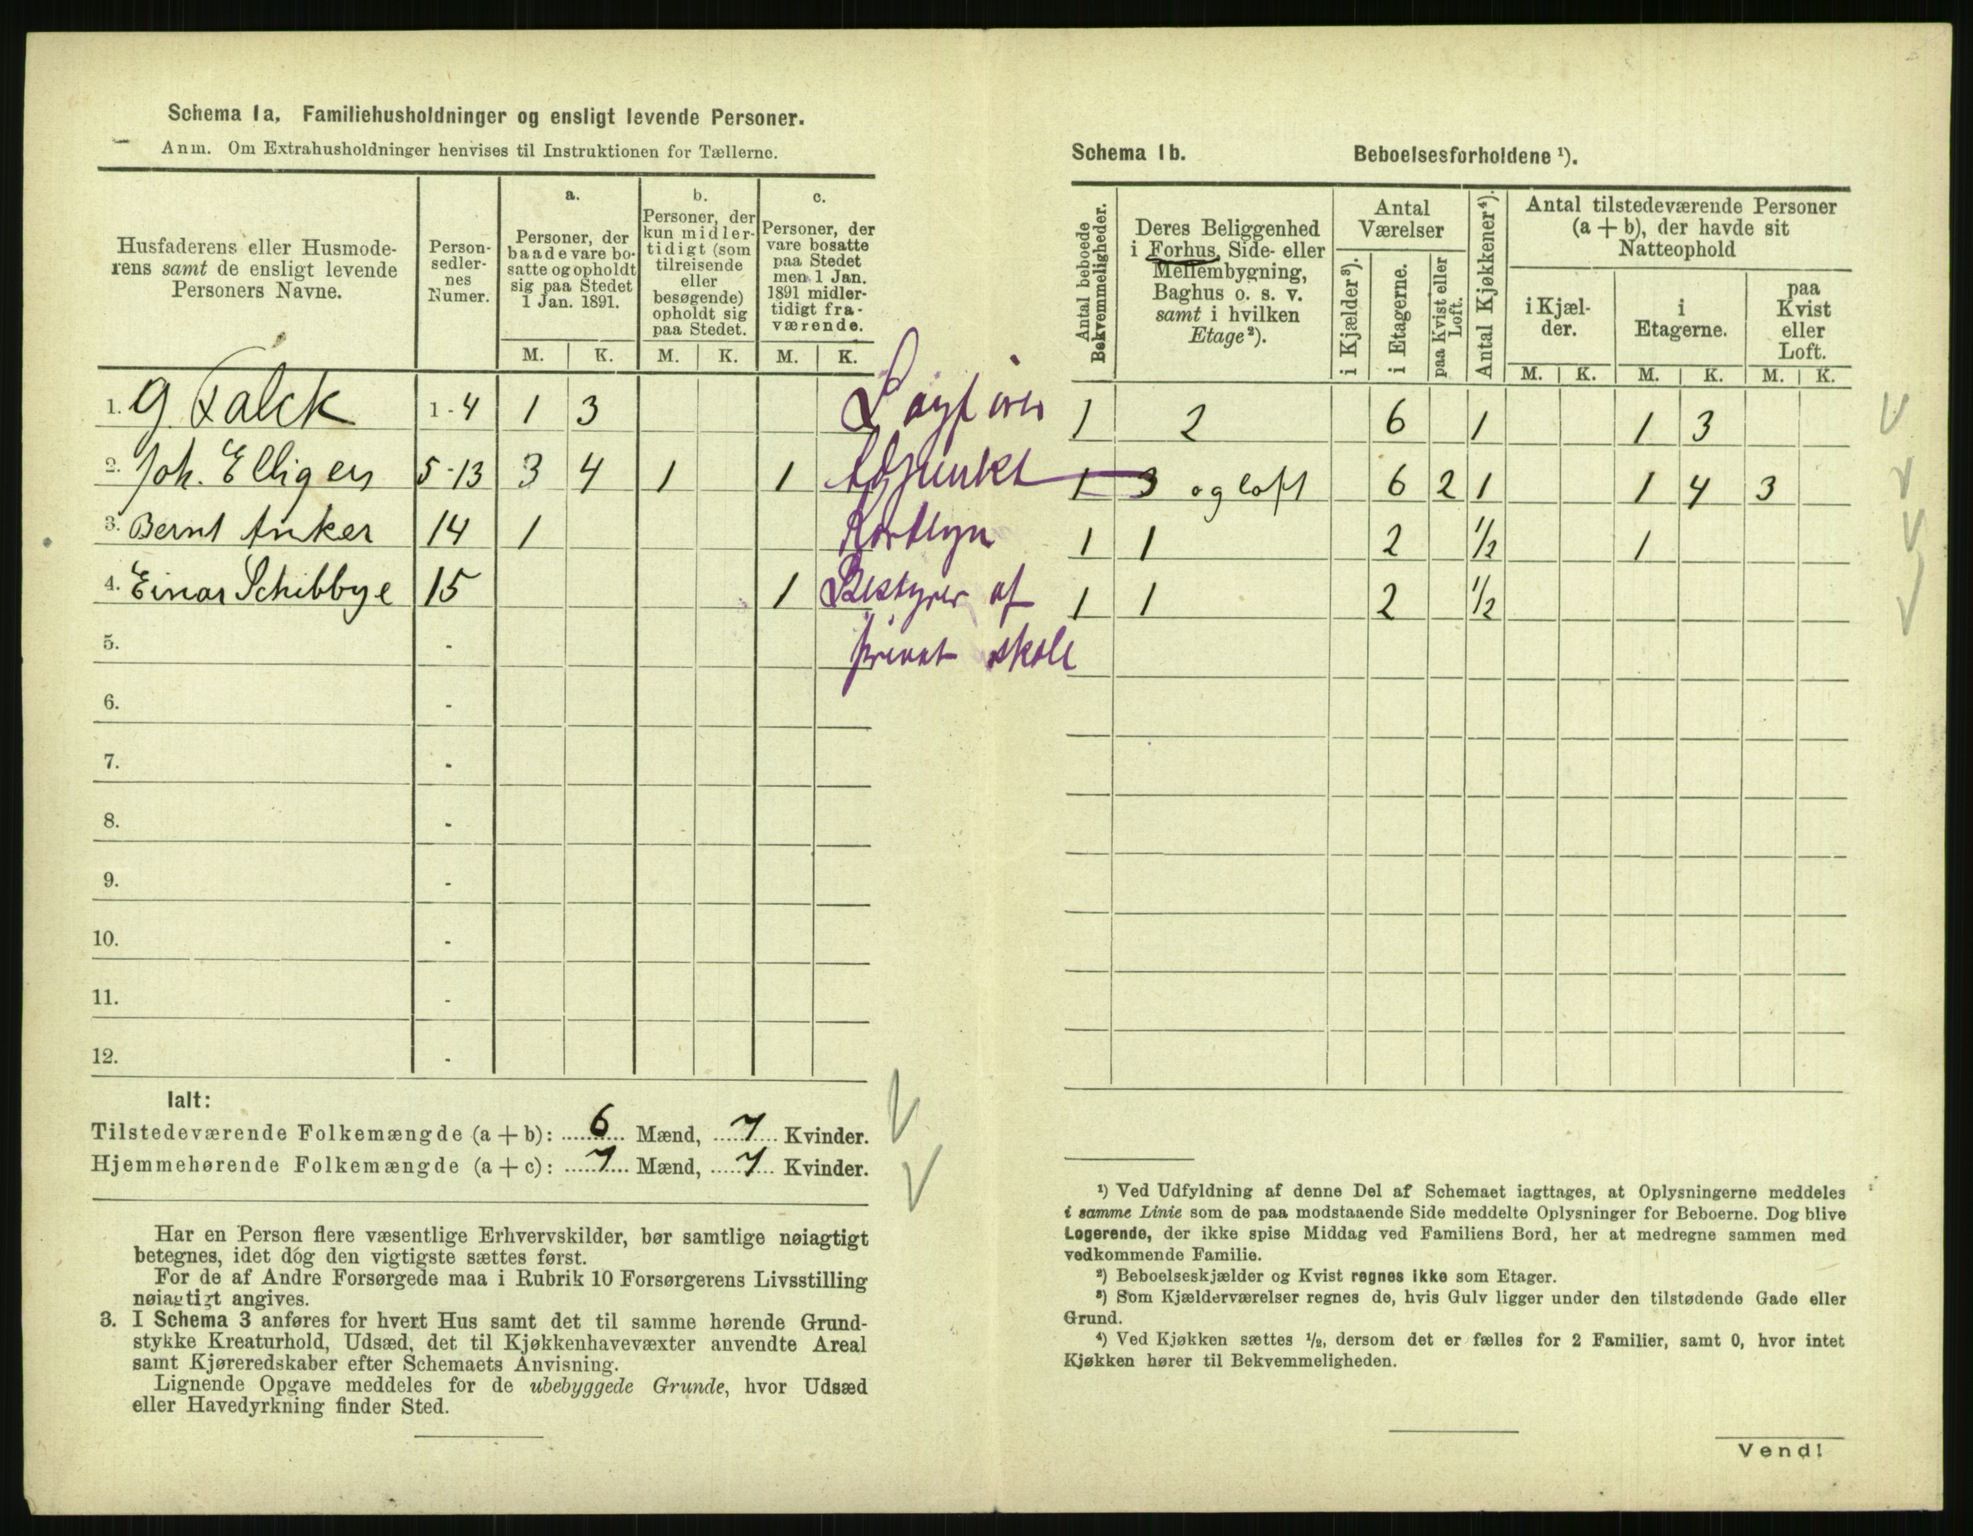 Schema 1a. Familiehusholdninger og ensligt levende Personer.
Anm. Om Extrahusholdninger henvises til Instruktionen for Tællerne.
Husfaderens eller Husmode-
rens samt de ensligt levende
Personers Navne.
Person-
sedler-
nes
Numer.
a.
Personer, der
baade vare bo-
satte og opholdt
sig paa Stedet
1 Jan. 1891.
b.
Personer, der
kun midler-
tidigt (som
tilreisende
eller
besøgende)
opholdt sig
paa Stedet.
c.
Personer, der
vare bosatte
paa Stedet
men 1 Jan.
1891 midler-
tidigt fra-
værende.
M. K. M. K. M. K.
1. G Falck 1-4 1 3
2. Joh. Elligers 5-13 3 4 1 1 Adjunkt
3. Bernt Anker 14 1
4. Einar Schibbye 15 1 Bestyrer af
privat skole
5. -
6. -
7. -
8. -
9. -
10. -
11. -
12. -
Ialt:
Tilstedeværende Folkemængde (a + b): 6 Mænd, 7 Kvinder.
Hjemmehørende Folkemængde (a + c): 7 Mænd, 7 Kvinder.
Har en Person flere væsentlige Erhvervskilder, bør samtlige nøiagtigt
betegnes, idet dog den vigtigste sættes først.
For de af Andre Forsørgede maa i Rubrik 10 Forsørgerens Livsstilling
nøiagtigt angives.
3. I Schema 3 anføres for hvert Hus samt det til samme hørende Grund-
stykke Kreaturhold, Udsæd, det til Kjøkkenhavevæxter anvendte Areal
samt Kjøreredskaber efter Schemaets Anvisning.
Lignende Opgave meddeles for de ubebyggede Grunde, hvor Udsæd
eller Havedyrkning finder Sted.
Schema 1b. Beboelsesforholdene ¹).
Antal beboede
Bekvemmeligheder.
Deres Beliggenhed
i Forhus, Side- eller
Mellembygning,
Baghus o. s. v.
samt i hvilken
Etage²).
Antal
Værelser
i Kjælder³).
i Etagerne.
paa Kvist eller
Loft.
Antal Kjøkkener⁴).
Antal tilstedeværende Personer
(a + b), der havde sit
Natteophold
i Kjæl-
der.
i
Etagerne.
paa
Kvist
eller
Loft.
M. K. M. K. M. K.
1 2 6 1 1 3
1 3 og Loft 6 2 1 1 4 3
1 1 2 1/2 1
1 1 2 1/2
¹) Ved Udfyldning af denne Del af Schemaet iagttages, at Oplysningerne meddeles
i samme Linie som de paa modstaaende Side meddelte Oplysninger for Beboerne. Dog blive
Logerende, der ikke spise Middag ved Familiens Bord, her at medregne sammen med
vedkommende Familie.
²) Beboelseskjælder og Kvist regnes ikke som Etager.
³) Som Kjælderværelser regnes de, hvis Gulv ligger under den tilstødende Gade eller
Grund.
⁴) Ved Kjøkken sættes ¹/₂, dersom det er fælles for 2 Familier, samt 0, hvor intet
Kjøkken hører til Bekvemmeligheden.
Vend!